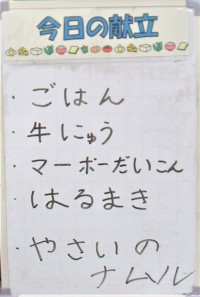 今日の献立
・ごはん
・牛にゅう
・マーボーだいこん
・はるまき
・やさいの
ナムル